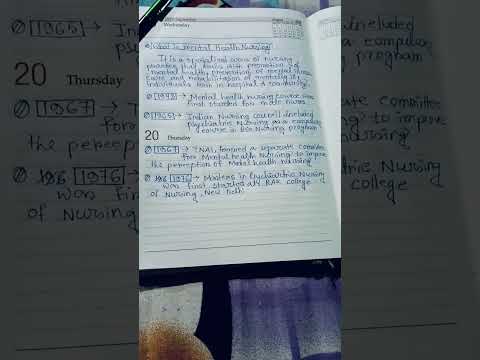 September
Wednesday
What is Mental Health Nursing?
It is a specialised area of nursing
practice that deals with promotion of
mental health, prevention of mental illness,
care and rehabilitation of mentally ill
individuals both in hospital & community.
→ Mental health nursing course were
first started for male nurses
1965 → Indian Nursing council included
Psychiatric Nursing as a compulsory
course in BSc Nursing program
20 Thursday
1967 → TNAI, formed a separate committee
for Mental health Nursing to improve
the perception of Mental health nursing
1976 → Masters in Psychiatric Nursing
was first started at RAK college
of Nursing, New Delhi
1965
Indian
included
a compulsory
program
20
Thursday
1967 →
for
the percep
committee
to improve
nursing
1976 →
was
of Nursing
Nursing
college